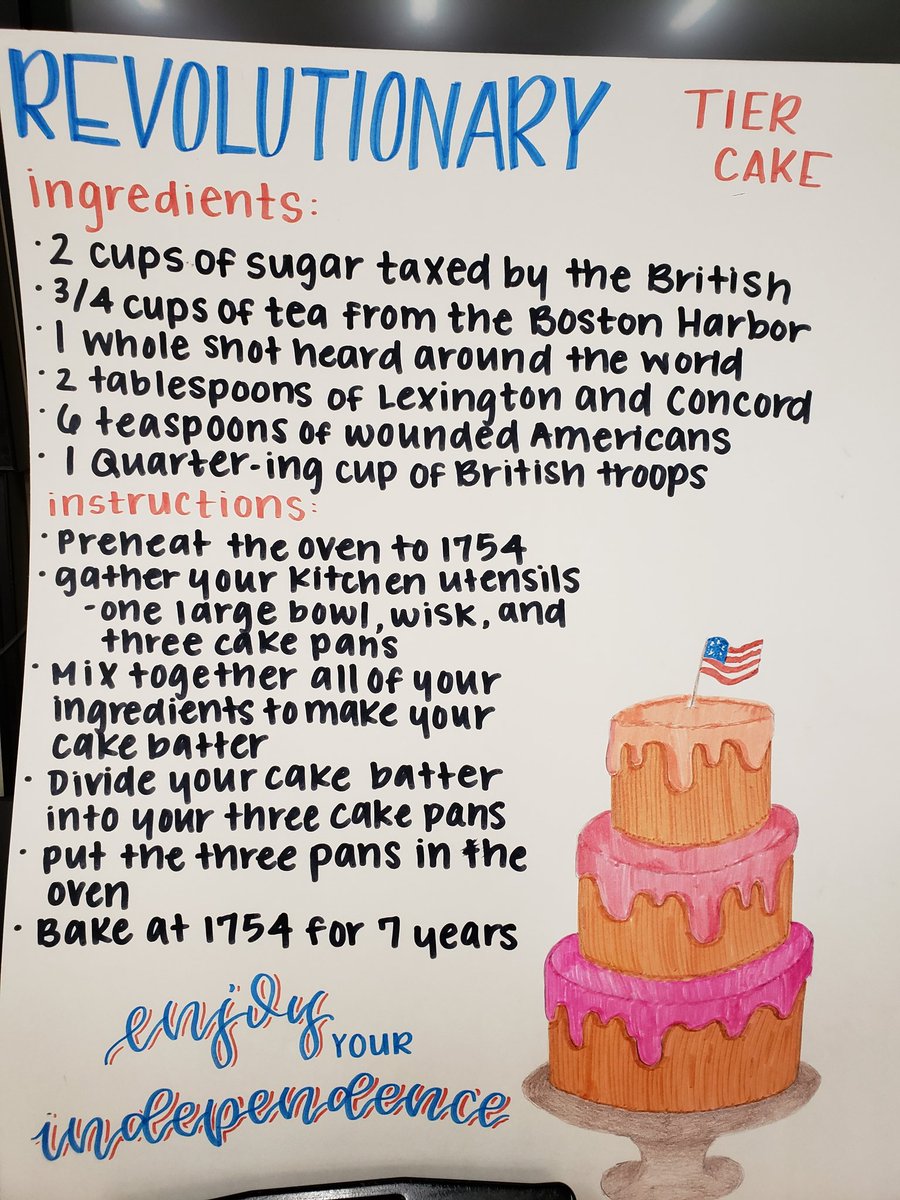 REVOLUTIONARY
TIER
CAKE
ingredients:
· 2 cups of sugar taxed by the British
· 3/4 cups of tea from the Boston Harbor
· 1 whole shot heard around the world
· 2 tablespoons of Lexington and Concord
· 6 teaspoons of wounded Americans
· 1 Quarter-ing cup of British troops
instructions:
· Preheat the oven to 1754
· gather your kitchen utensils
- one large bowl, wisk, and
three cake pans
· Mix together all of your
ingredients to make your
cake batter
· Divide your cake batter
into your three cake pans
· put the three pans in the
oven
· Bake at 1754 for 7 years
enjoy YOUR
independence